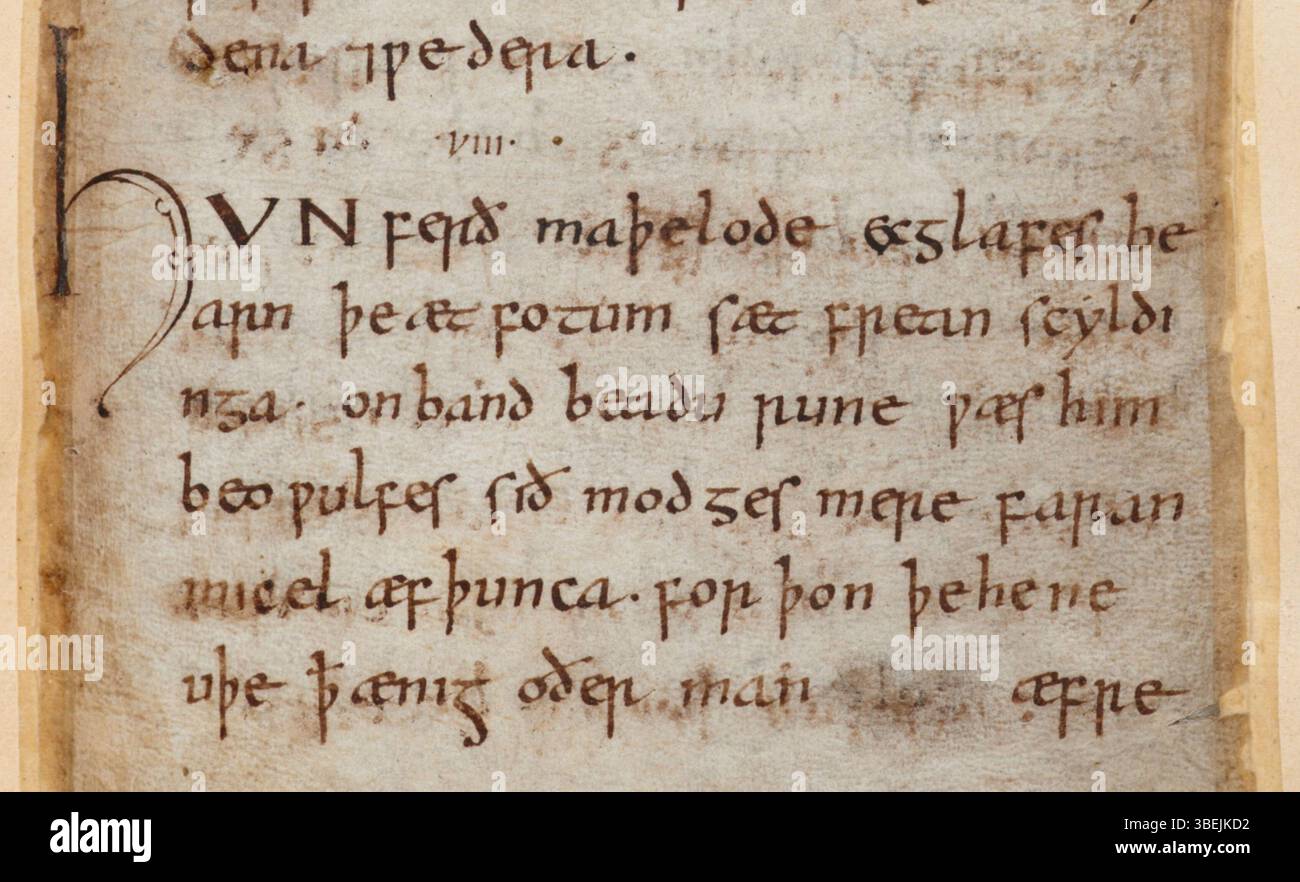 dena ⁊ƿedera·
VIII·
HVN ferð maþelode ecglafes be
arn þe æt fotum sæt frean scyldi
nga· onband beadu rune ƿæs him
beo ƿulfes sið modges mere faran
micel æfþunca· for þon þe he ne
uþe ꝥ ænig oðer man æfre
alamy
Image ID: 3BEJKD2
www.alamy.com